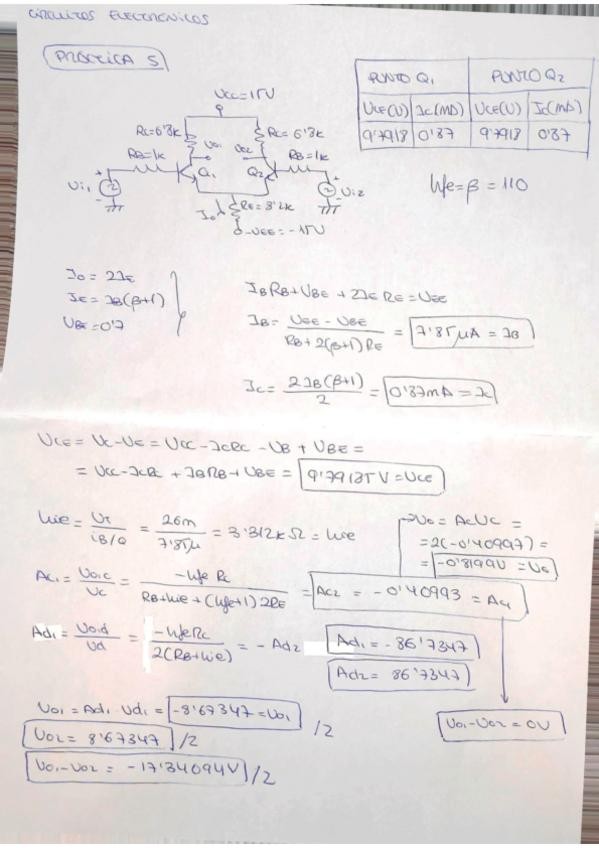 CIRCUITOS ELECTRONICOS
PRÁCTICA 5
PUNTO Q1 PUNTO Q2
UCE(V) IC(MA) UCE(V) IC(MA)
9'7918 0'87 9'7918 0'87
VCC=15V
RC=6'8K RC=6'8K
Vo1 Vo2
RB=1K RB=1K
Q1 Q2
Ui1 Ui2
Io RE=8'2K
-VEE=-15V
hfe=β=110
Io = 2IE
IE = IB(β+1)
VBE=0'7
IBRB+VBE+2IE RE=VEE
IB= (VEE-VBE)/(RB+2(β+1)RE) = 7'85μA=IB
IC= 2IB(β+1)/2 = 0'87mA=IC
UCE=UC-UE=UCC-ICRC-UB+UBE=
=UCC-ICRC+IBRB+UBE= 9'79185V=UCE
hie= UT/iB/Q = 26m/7'85μ = 3'312KΩ=hie
→Uo=ACUC=
=2(-0'40997)=
= -0'8199V =Uo
AC1= Uo1c/UC = -hfe RC/(RB+hie+(hfe+1)2RE) = AC2 = -0'40993 = AC1
Ad1= Uo1d/Ud = -hfeRC/2(RB+hie) = -Ad2
Ad1=-86'7347
Ad2= 86'7347
Uo1=Ad1·Ud1= -8'67347=Uo1 /2
Uo2= 8'67347 /2
Uo1-Uo2=0V
Uo1-Uo2= -17'34094V /2